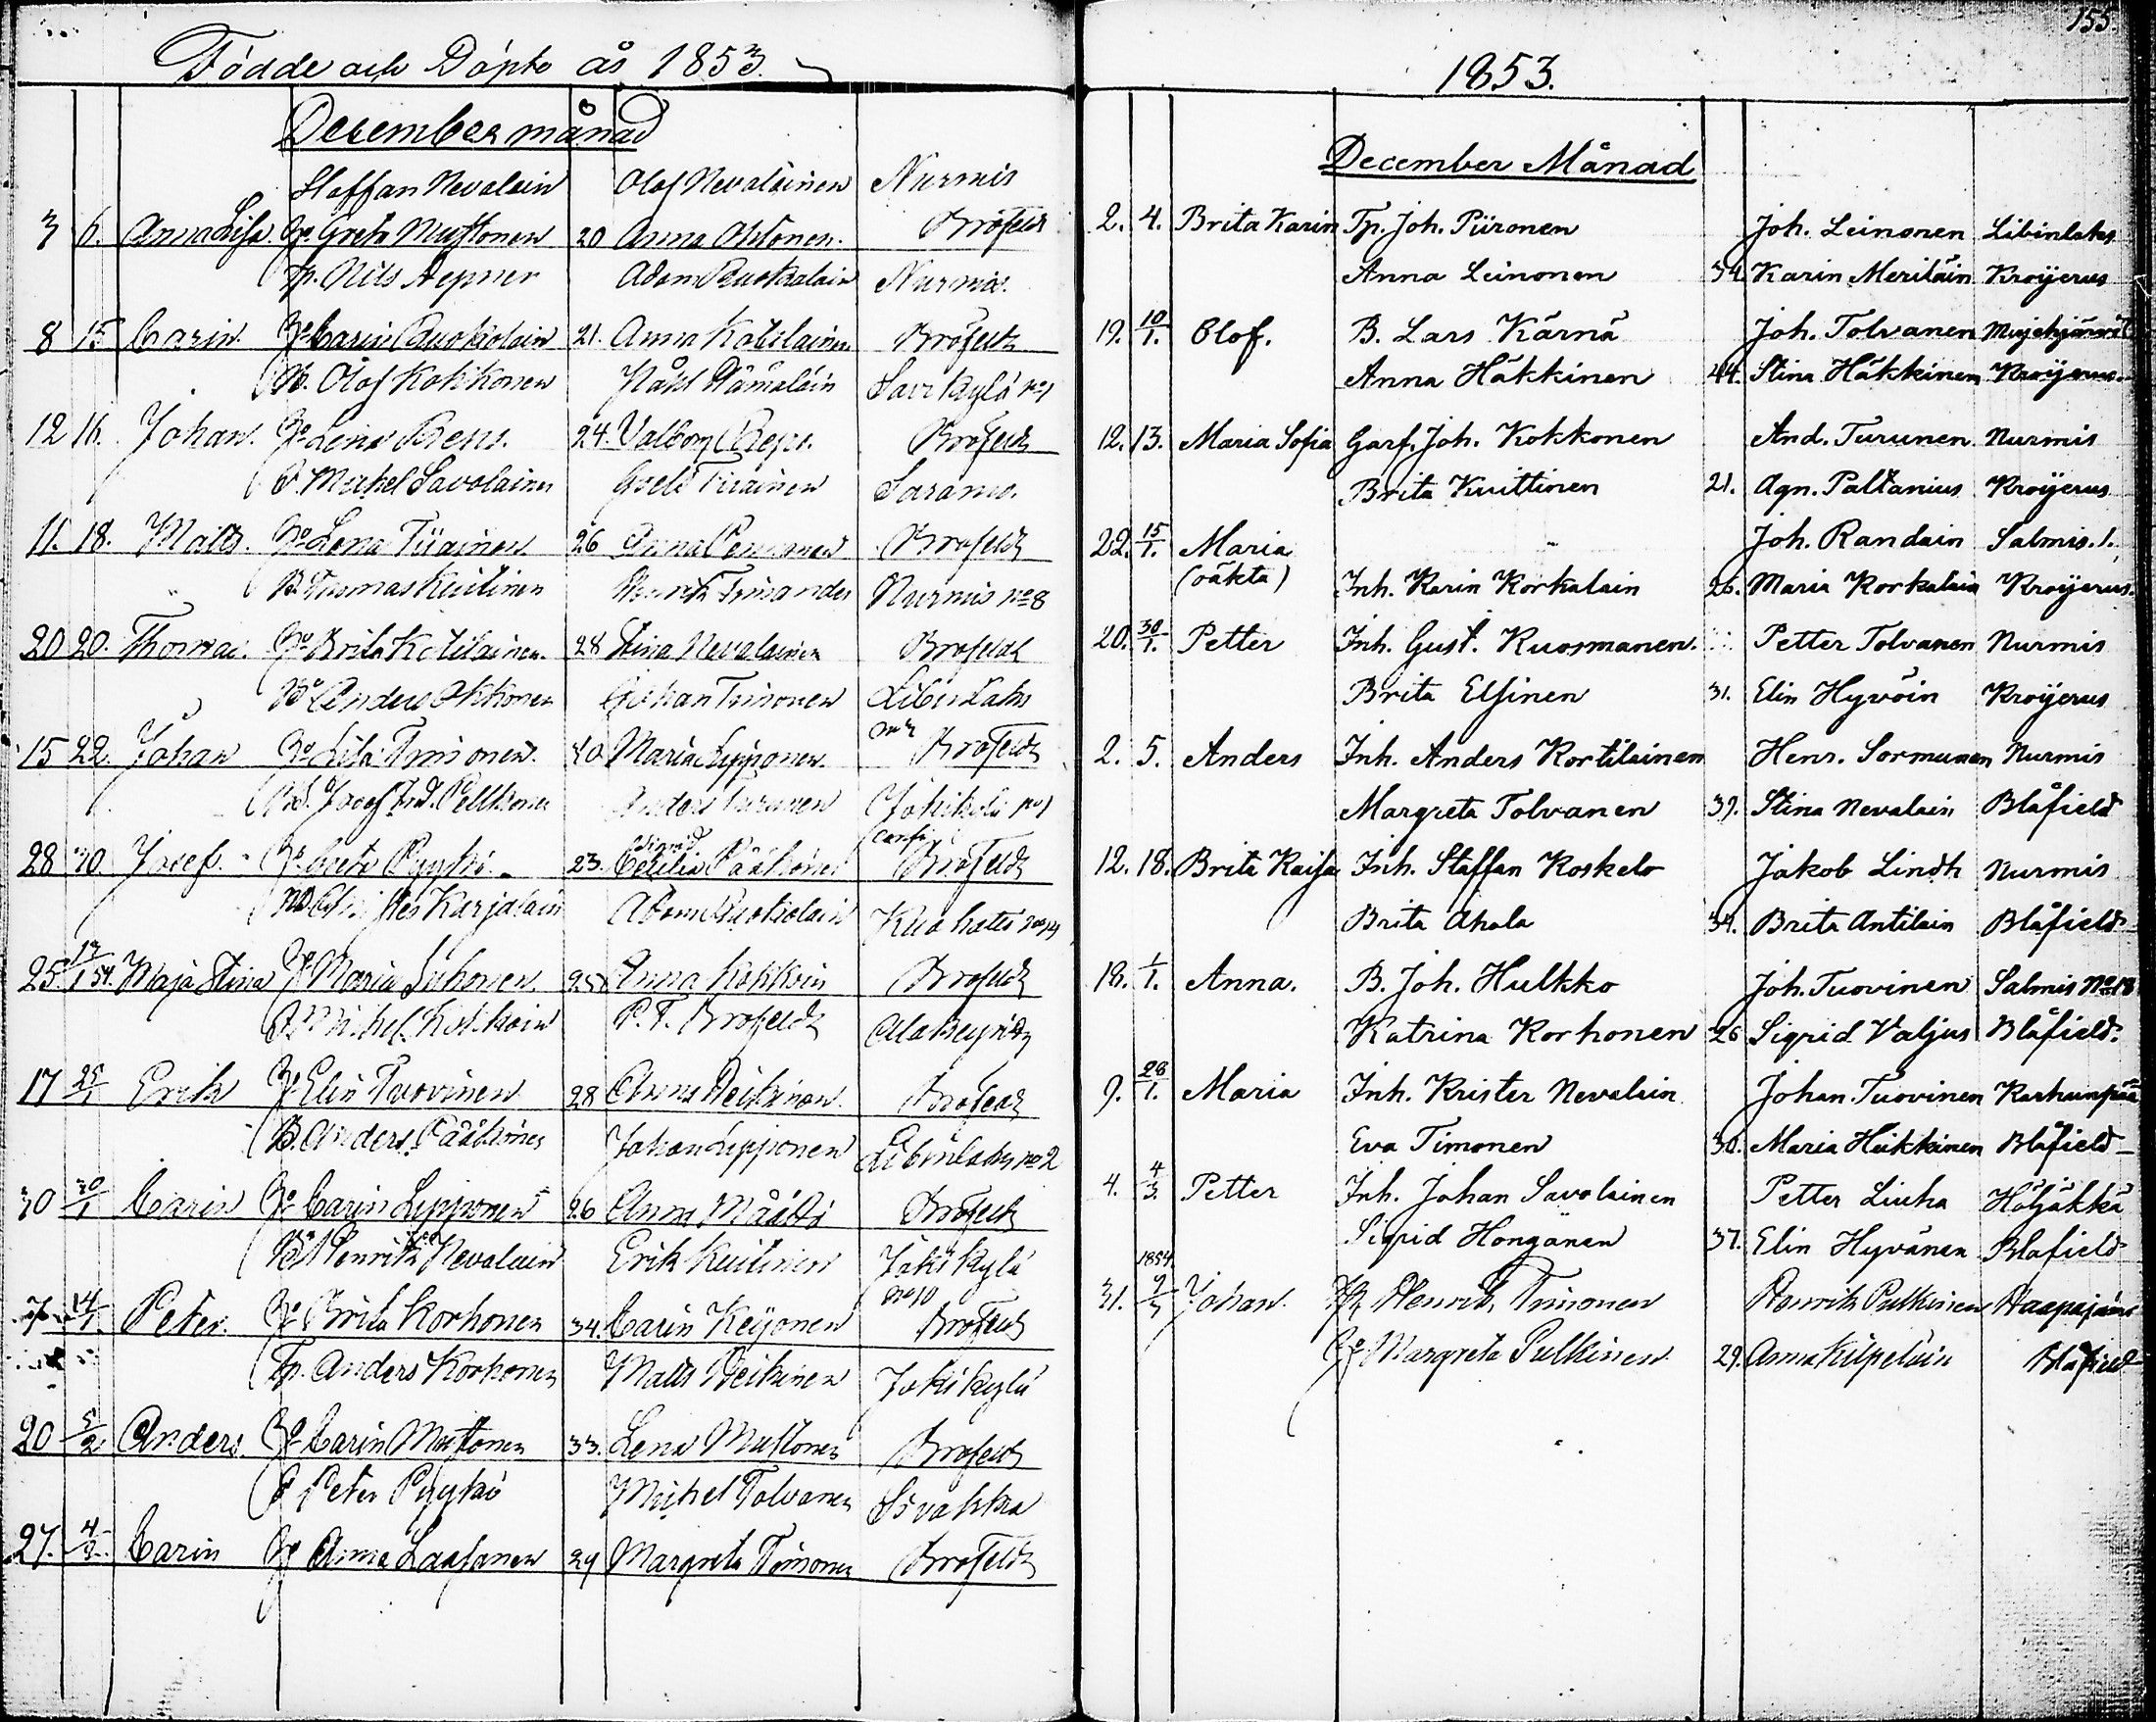 Födde och Döpte år 1853.
December månad
Staffan Nevalain Olof Nevalainen Nurmis
3 6. Anna Lisa. Greta Mustonen 20 Anna Oktonen. Brofeldt
Tp. Nils Adam Ruokolain Nurmis.
8 15 Carin. Carin Ruokolain 21. Anna Kotilainen Brofeldt
B. Olof Kokkonen Påhl Hämäläin Savikylä No 1
12 16. Johan. Lena 24. Valborg Brofeldt
B. Michel Savolainen Tiiainen Saramo.
11. 18. Matts. Lena Tiiainen 26 Anna Pennanen Brofeldt
B. Thomas Kuitinen Henrik Nurmis No 8
20 20. Thomas. Brita Kotilainen. 28 Stina Nevalainen Brofeldt
Anders Okkonen Johan Timonen Libinlaks
15 22. Johan Lisa Timonen. 40 Maria Lipponen. Brofeldt
Josef Pelkonen Anders Turunen Jokikylä No 1
28 30. Josef. Greta Pyykö. 23. Cecilia Pääkönen Brofeldt
Karjalain Adam Ruokolain Kuohatti No 14
25. 13/1 54. Maja Stina Maria Juhonen. 25 Anna Kokkoin Brofeldt
Michel Kokkoin P. F. Brofeldt
17 25/1 Erik Elin Tuovinen 28 Anna Heikinen. Brofeldt
B. Anders Pääkönen Johan Lipponen Libinlaks No 2
30 30/1 Carin Carin Lipponen 26 Anna Määttä Brofeldt
Henrik Nevalain Erik Kuitinen Jokikylä No 10
7 14/1. Peter. Brita Korhonen 34. Carin Keijonen Brofeldt
Tp. Anders Korhonen Matts Heikinen Jokikylä
20 5/2 Anders. Carin Mustonen 33. Lena Mustonen Brofeldt
B Peter Pyykö Michel Tolvanen Sivakka
27. 4/3. Carin Anna Laasanen 29 Margreta Timonen Brofeldt
155.
1853.
December Månad
2. 4. Brita Karin Tp. Joh. Piironen Joh. Leinonen Libinlaks
Anna Leinonen 34. Karin Meriläin Kroijerus
19. 10/1. Olof. B. Lars Kärnä Joh. Tolvanen Mujehjärvi
Anna Häkkinen 44. Stina Häkkinen Kroijerus.
12. 13. Maria Sofia Garf. Joh. Kokkonen And. Turunen Nurmis
Brita Kuittinen 21. Agn. Paldanius Kroijerus
22. 15/1. Maria Joh. Randain Salmis. 1.
(oäkta) Inh. Karin Korkalain 26. Maria Korkalain Kroijerus.
20. 30/1. Petter Inh. Gust. Kuosmanen. Petter Tolvanen Nurmis
Brita Elfinen 31. Elin Hyvöin Kroijerus
2. 5. Anders Inh. Anders Kortilainen Henr. Sormunen Nurmis
Margreta Tolvanen 39. Stina Nevalain Blåfield
12. 18. Brita Kaisa Inh. Staffan Koskelo Jakob Lindh Nurmis
Brita Ahola 34. Brita Antilain Blåfield.
18. 1/1. Anna. B. Joh. Hulkko Joh. Tuovinen Salmis No 18
Katrina Korhonen 26 Sigrid Valjus Blåfield.
9. 28/1. Maria Inh. Krister Nevalain Johan Tuovinen Karhunpää
Eva Timonen 30. Maria Heikkinen Blåfield
4. 4/3. Petter Inh. Johan Savolainen Petter Liuha Höljäkkä
Sigrid Hongänen 37. Elin Hyvänen Blåfield
1854
31. 9/3 Johan. Henrik Timonen Henrik Pulkinen Haapajärvi
Margreta Pulkinen. 29. Anna Kilpeläin Blåfield